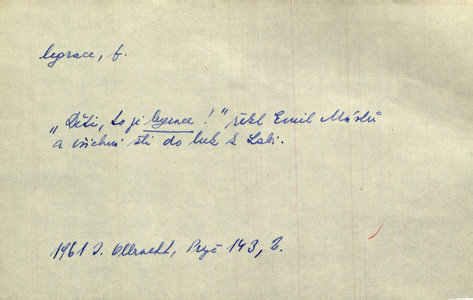 legrace, f.
„Děti, to je legrace!" řekl Emil
a všichni šli do luk k Labi.
1961 I. Olbracht, 143, 2.